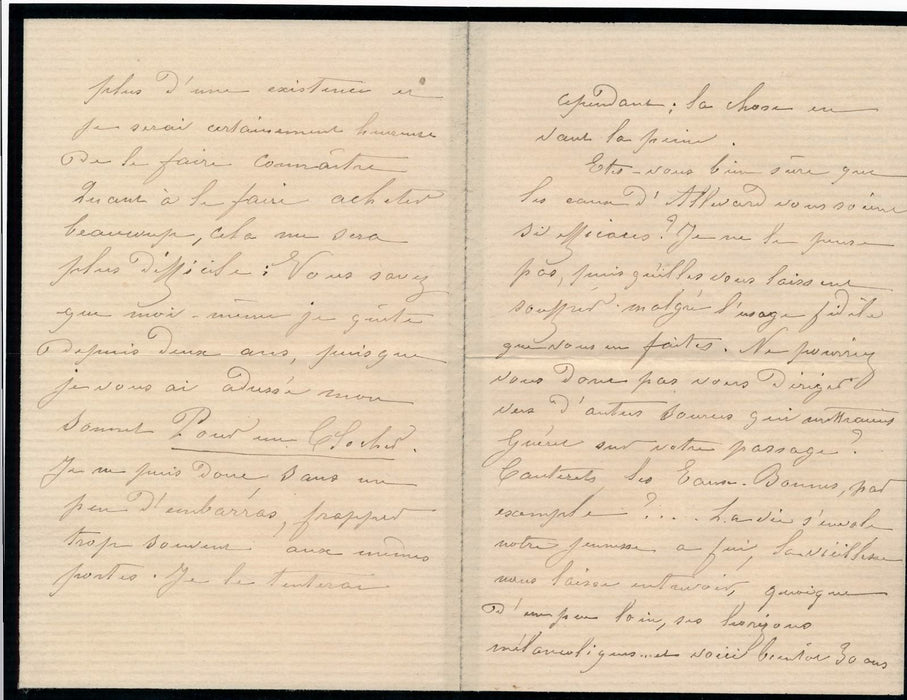 plus d'une existence et
je serai certainement heureuse
de le faire connaître
Quant à le faire acheter
beaucoup, cela me sera
plus difficile : Vous savez
que moi-même je quête
depuis deux ans, puisque
je vous ai adressé mon
sonnet Pour un Clocher.
Je ne puis donc sans un
peu d'embarras, frapper
trop souvent aux mêmes
portes. Je le tenterai
cependant ; la chose en
vaut la peine.
Etes-vous bien sûre que
les eaux d'Allevard vous soient
si efficaces ? Je ne le pense
pas, puisqu'elles vous laissent
souffrir malgré l'usage fidèle
que vous en faites. Ne pourriez
vous donc pas vous diriger
vers d'autres sources qui mettraient
Guéret sur votre passage ?
Cauterets, les Eaux-Bonnes, par
exemple ?.... La vie s'envole
notre jeunesse a fui, la vieillesse
nous laisse entrevoir, quoique
d'un peu loin, ses horizons
mélancoliques... et voici bientôt 30 ans